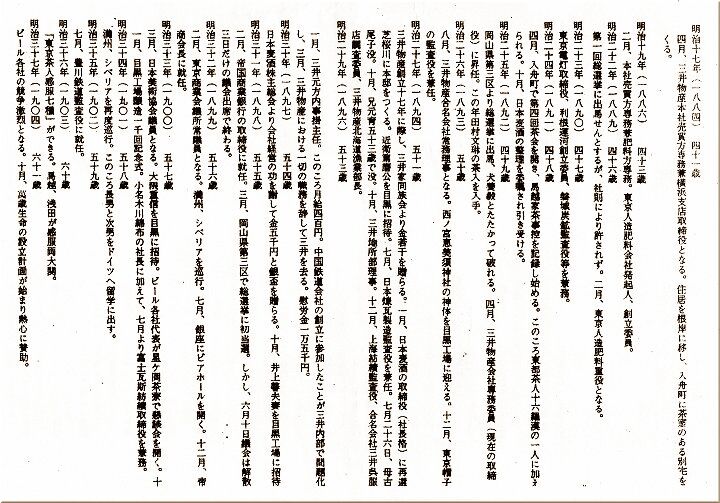 明治十七年(一八八四) 四十一歳
四月、三井物産本社売買方専務兼横浜支店取締役となる。住居を根岸に移し、入舟町に茶室のある別宅を
つくる。
明治十九年(一八八六) 四十三歳
二月、本社売買方専務兼肥料方専務。東京人造肥料会社発起人、創立委員。
明治二十二年(一八八九) 四十六歳
第一回総選挙に出馬せんとするが、社則により許されず。二月、東京人造肥料重役となる。
明治二十三年(一八九〇) 四十七歳
東京電灯取締役、利根運河創立委員、磐城炭鉱監査役等を兼務。
明治二十四年(一八九一) 四十八歳
四月、入舟町で第四回茶会を開き、馬越家茶事控を記録し始める。このころ東都茶人十六羅漢の一人に加え
られる。十月、日本麦酒の整理を委嘱され引き受ける。
明治二十五年(一八九二) 四十九歳
岡山県第三区より総選挙に出馬、犬養毅とたたかって破れる。四月、三井物産会社専務委員(現在の取締
役)に昇任。この年田村文琳の茶入を入手。
明治二十六年(一八九三) 五十歳
八月、三井物産合名会社常務理事となる。西ノ宮恵美須神社の神体を目黒工場に迎える。十二月、東京帽子
の監査役を兼任。
明治二十七年(一八九四) 五十一歳
三井物産創立十七年に際し、三井家同族会より金若干を贈らる。一月、日本麦酒の取締役(社長格)に再選
芝桜川に本邸をつくる。近衛篤麿公を目黒に招待。七月、日本煉瓦製造監査役を兼任。七月二十六日、母古
尾子没。十月、兄元育五十三歳で没。十月、三井地所部理事。十二月、上海紡績監査役、合名会社三井呉服
店調査委員、三井物産北海道漁業部長。
明治二十九年(一八九六) 五十三歳
一月、三井元方内事掛主任。このころ月給四百円。中国鉄道会社の創立に参加したことが三井内部で問題化
し、三月、三井物産における一切の職務を辞して三井を去る。慰労金一万五千円。
明治三十年(一八九七) 五十四歳
日本麦酒株主総会より会社経営の功を謝して金五千円と銀盃を贈らる。十月、井上馨夫妻を目黒工場に招待
明治三十一年(一八九八) 五十五歳
二月、帝国商業銀行の取締役に就任。三月、岡山県第三区で総選挙に初当選。しかし、六月十日議会は解散
三日だけの議会出席で終わる。
明治三十二年(一八九九) 五十六歳
二月、東京商業会議所常議員となる。満州、シベリアを巡行。七月、銀座にビアホールを開く。十二月、帝
商会長に就任。
明治三十三年(一九〇〇) 五十七歳
三月、日本美術協会議員となる。大隈重信を目黒に招待。ビール各社代表が星ケ岡茶寮で懇談会を開く。十
一月、目黒工場醸造一千回記念式。小名木川綿布の社長に加えて、七月より富士瓦斯紡績取締役を兼務。
明治三十四年(一九〇一) 五十八歳
満州、シベリアを再度巡行。このころ長男と次男をドイツへ留学に出す。
明治三十五年(一九〇二) 五十九歳
七月、豊川鉄道監査役に就任。
明治三十六年(一九〇三) 六十歳
「東京茶人感服七種」ができる。馬越、浅田が感服両大関。
明治三十七年(一九〇四) 六十一歳
ビール各社の競争激烈となる。十月、万歳生命の設立計画が始まり熱心に賛助。